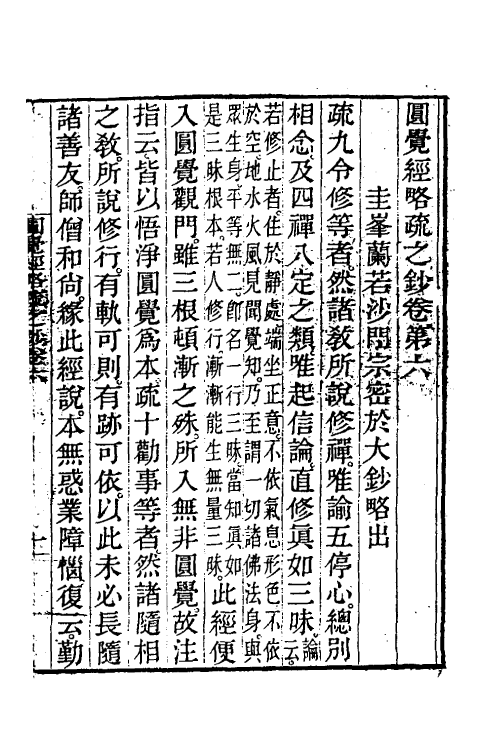 圓覺經略疏之鈔卷第六
圭峯蘭若沙門宗密於大鈔略出
疏九令修等者。然諸教所說修禪。唯諭五停心。總別
相念。及四禪八定之類。唯起信論。直修眞如三昧。論云。
若修止者。住於靜處。端坐正意。不依氣息形色。不依
於空。地水火風見聞覺知。乃至謂一切諸佛法身。與
眾生身。平等無二。卽名一行三昧。當知眞如
是三昧根本。若人修行。漸漸能生無量三昧。此經便
入圓覺觀門。雖三根頓漸之殊。所入無非圓覺。故注
指云。皆以悟淨圓覺爲本。疏十勸事等者。然諸隨相
之教。所說修行。有軌可則。有跡可依。以此未必長隨
諸善友。師僧和尚。緣此經說。本無惑業障惱。復云。勤